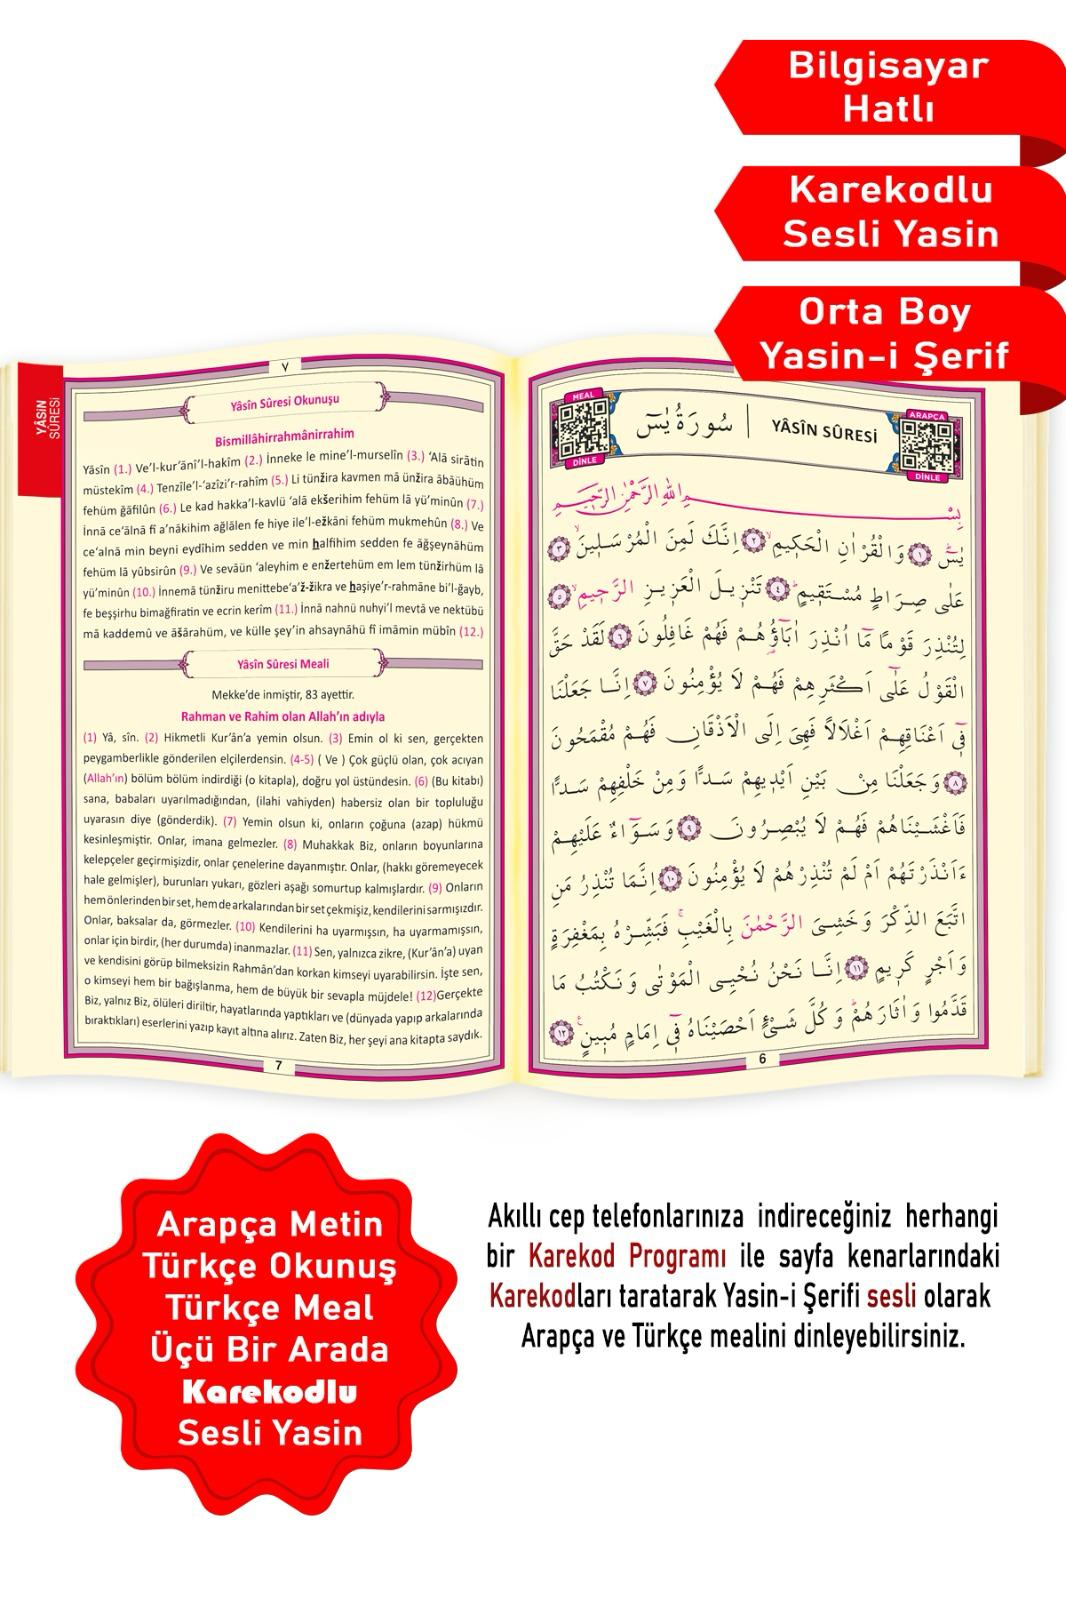 Bilgisayar
Hatlı
Karekodlu
Sesli Yasin
Orta Boy
Yasin-i Şerif
YÂSİN
SÛRESİ
٧
Yâsîn Sûresi Okunuşu
Bismillâhirrahmânirrahim
Yâsîn (1.) Ve'l-kur'ânî'l-hakîm (2.) İnneke le mine'l-murselîn (3.) 'Alâ sirâtin
müstekîm (4.) Tenzîle'l-'azîzi'r-rahîm (5.) Li tünžira kavmen mâ ünžira âbâühüm
fehüm ğâfilûn (6.) Le kad hakka'l-kavlü 'alâ ekšerihim fehüm lâ yü'minûn (7.)
İnnâ ce'âlnâ fî a'nâkihim ağlâlen fe hiye ile'l-ežkâni fehüm mukmehûn (8.) Ve
ce'alnâ min beyni eydîhim sedden ve min halfihim sedden fe âğşeynâhüm
fehüm lâ yûbsirûn (9.) Ve sevâün 'aleyhim e enžertehüm em lem tünžirhüm lâ
yü'minûn (10.) İnnemâ tünžiru menittebe'a'ž-žikra ve haşiye'r-rahmâne bi'l-ğayb,
fe beşşirhu bimağfiratin ve ecrin kerîm (11.) İnnâ nahnü nuhyi'l mevtâ ve nektübü
mâ kaddemû ve âšârahüm, ve külle şey'in ahsaynâhü fî imâmin mübîn (12.)
Yâsîn Sûresi Meali
Mekke'de inmiştir, 83 ayettir.
Rahman ve Rahim olan Allah'ın adıyla
(1) Yâ, sîn. (2) Hikmetli Kur'ân'a yemin olsun. (3) Emin ol ki sen, gerçekten
peygamberlikle gönderilen elçilerdensin. (4-5) ( Ve ) Çok güçlü olan, çok acıyan
(Allah'ın) bölüm bölüm indirdiği (o kitapla), doğru yol üstündesin. (6) (Bu kitabı)
sana, babaları uyarılmadığından, (ilahi vahiyden) habersiz olan bir topluluğu
uyarasın diye (gönderdik). (7) Yemin olsun ki, onların çoğuna (azap) hükmü
kesinleşmiştir. Onlar, imana gelmezler. (8) Muhakkak Biz, onların boyunlarına
kelepçeler geçirmişizdir, onlar çenelerine dayanmıştır. Onlar, (hakkı göremeyecek
hale gelmişler), burunları yukarı, gözleri aşağı somurtup kalmışlardır. (9) Onların
hem önlerinden bir set, hem de arkalarından bir set çekmişiz, kendilerini sarmışızdır.
Onlar, baksalar da, görmezler. (10) Kendilerini ha uyarmışsın, ha uyarmamışsın,
onlar için birdir, (her durumda) inanmazlar. (11) Sen, yalnızca zikre, (Kur'ân'a) uyan
ve kendisini görüp bilmeksizin Rahmân'dan korkan kimseyi uyarabilirsin. İşte sen,
o kimseyi hem bir bağışlanma, hem de büyük bir sevapla müjdele! (12)Gerçekte
Biz, yalnız Biz, ölüleri diriltir, hayatlarında yaptıkları ve (dünyada yapıp arkalarında
bıraktıkları) eserlerini yazıp kayıt altına alırız. Zaten Biz, her şeyi ana kitapta saydık.
7
MEAL
DİNLE
سُورَةُ يٰسٓ
YÂSÎN SÛRESİ
ARAPÇA
DİNLE
بِسْمِ اللّٰهِ الرَّحْمٰنِ الرَّحِيمِ
يٰسٓ ﴿١﴾ وَالْقُرْاٰنِ الْحَكِيمِ ﴿٢﴾ اِنَّكَ لَمِنَ الْمُرْسَلِينَ ﴿٣﴾
عَلٰى صِرَاطٍ مُسْتَقِيمٍ ﴿٤﴾ تَنْزِيلَ الْعَزِيزِ الرَّحِيمِ ﴿٥﴾
لِتُنْذِرَ قَوْمًا مَٓا اُنْذِرَ اٰبَٓاؤُهُمْ فَهُمْ غَافِلُونَ ﴿٦﴾ لَقَدْ حَقَّ
الْقَوْلُ عَلٰٓى اَكْثَرِهِمْ فَهُمْ لَا يُؤْمِنُونَ ﴿٧﴾ اِنَّا جَعَلْنَا
فِٓى اَعْنَاقِهِمْ اَغْلَالًا فَهِىَ اِلَى الْاَذْقَانِ فَهُمْ مُقْمَحُونَ
﴿٨﴾ وَجَعَلْنَا مِنْ بَيْنِ اَيْدِيهِمْ سَدًّا وَمِنْ خَلْفِهِمْ سَدًّا
فَاَغْشَيْنَاهُمْ فَهُمْ لَا يُبْصِرُونَ ﴿٩﴾ وَسَوَٓاءٌ عَلَيْهِمْ
ءَاَنْذَرْتَهُمْ اَمْ لَمْ تُنْذِرْهُمْ لَا يُؤْمِنُونَ ﴿١٠﴾ اِنَّمَا تُنْذِرُ مَنِ
اتَّبَعَ الذِّكْرَ وَخَشِىَ الرَّحْمٰنَ بِالْغَيْبِۚ فَبَشِّرْهُ بِمَغْفِرَةٍ
وَاَجْرٍ كَرِيمٍ ﴿١١﴾ اِنَّا نَحْنُ نُحْيِى الْمَوْتٰى وَنَكْتُبُ مَا
قَدَّمُوا وَاٰثَارَهُمْؕ وَكُلَّ شَىْءٍ اَحْصَيْنَاهُ فِٓى اِمَامٍ مُبِينٍ ﴿١٢﴾
6
Arapça Metin
Türkçe Okunuş
Türkçe Meal
Üçü Bir Arada
Karekodlu
Sesli Yasin
Akıllı cep telefonlarınıza indireceğiniz herhangi
bir Karekod Programı ile sayfa kenarlarındaki
Karekodları taratarak Yasin-i Şerifi sesli olarak
Arapça ve Türkçe mealini dinleyebilirsiniz.